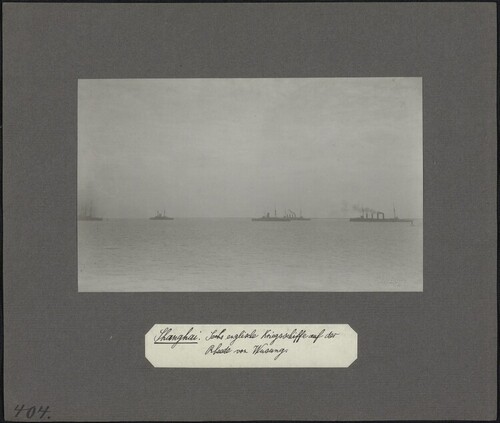 Shanghai. Sechs englische Kriegsschiffe auf der
Rhede von Wusung.
404.